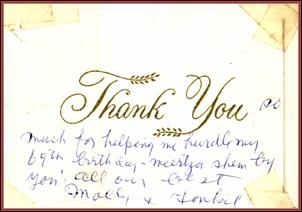 Thank You so
much for helping me hurdle my
69th birthday - mertza shem by
you! all our best
Molly &